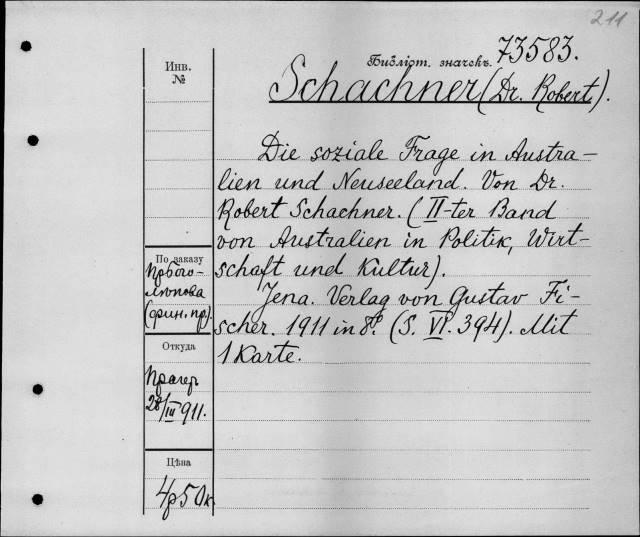 211
Библіот. значекъ. 73583.
Инв.
№
Schachner (Dr. Robert).
Die soziale Frage in Austra-
lien und Neuseeland. Von Dr.
Robert Schachner. (II-ter Band
von Australien in Politik, Wirt-
schaft und Kultur).
Jena. Verlag von Gustav Fi-
scher. 1911 in 8º. (S. VI. 394). Mit
1 Karte.
По заказу
прБого-
лѣпова
(фин. пр).
Откуда
Прагеръ
28/III 911.
Цѣна
4р50к.